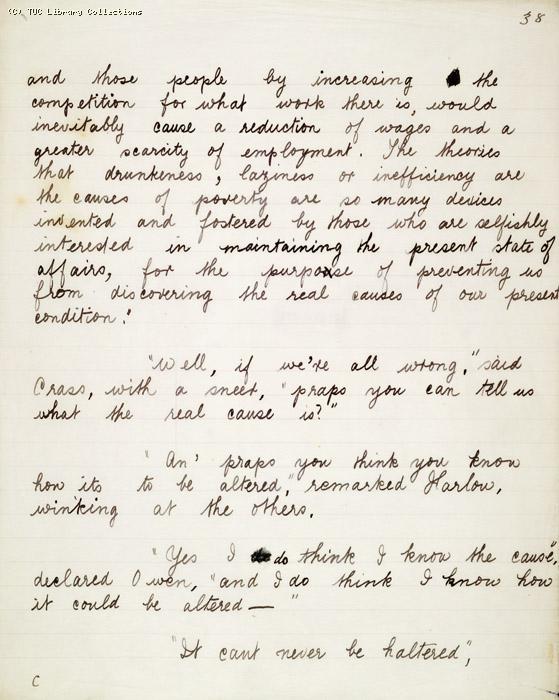 (C) TUC Library Collections
38
and those people by increasing the
competition for what work there is, would
inevitably cause a reduction of wages and a
greater scarcity of employment. The theories
that drunkeness, laziness or inefficiency are
the causes of poverty are so many devices
invented and fostered by those who are selfishly
interested in maintaining the present state of
affairs, for the purpose of preventing us
from discovering the real causes of our present
condition."
"Well, if we're all wrong," said
Crass, with a sneer, "praps you can tell us
what the real cause is?"
"An' praps you think you know
how its to be altered," remarked Harlow,
winking at the others.
"Yes I do think I know the cause",
declared Owen, "and I do think I know how
it could be altered — "
"It cant never be haltered",
C